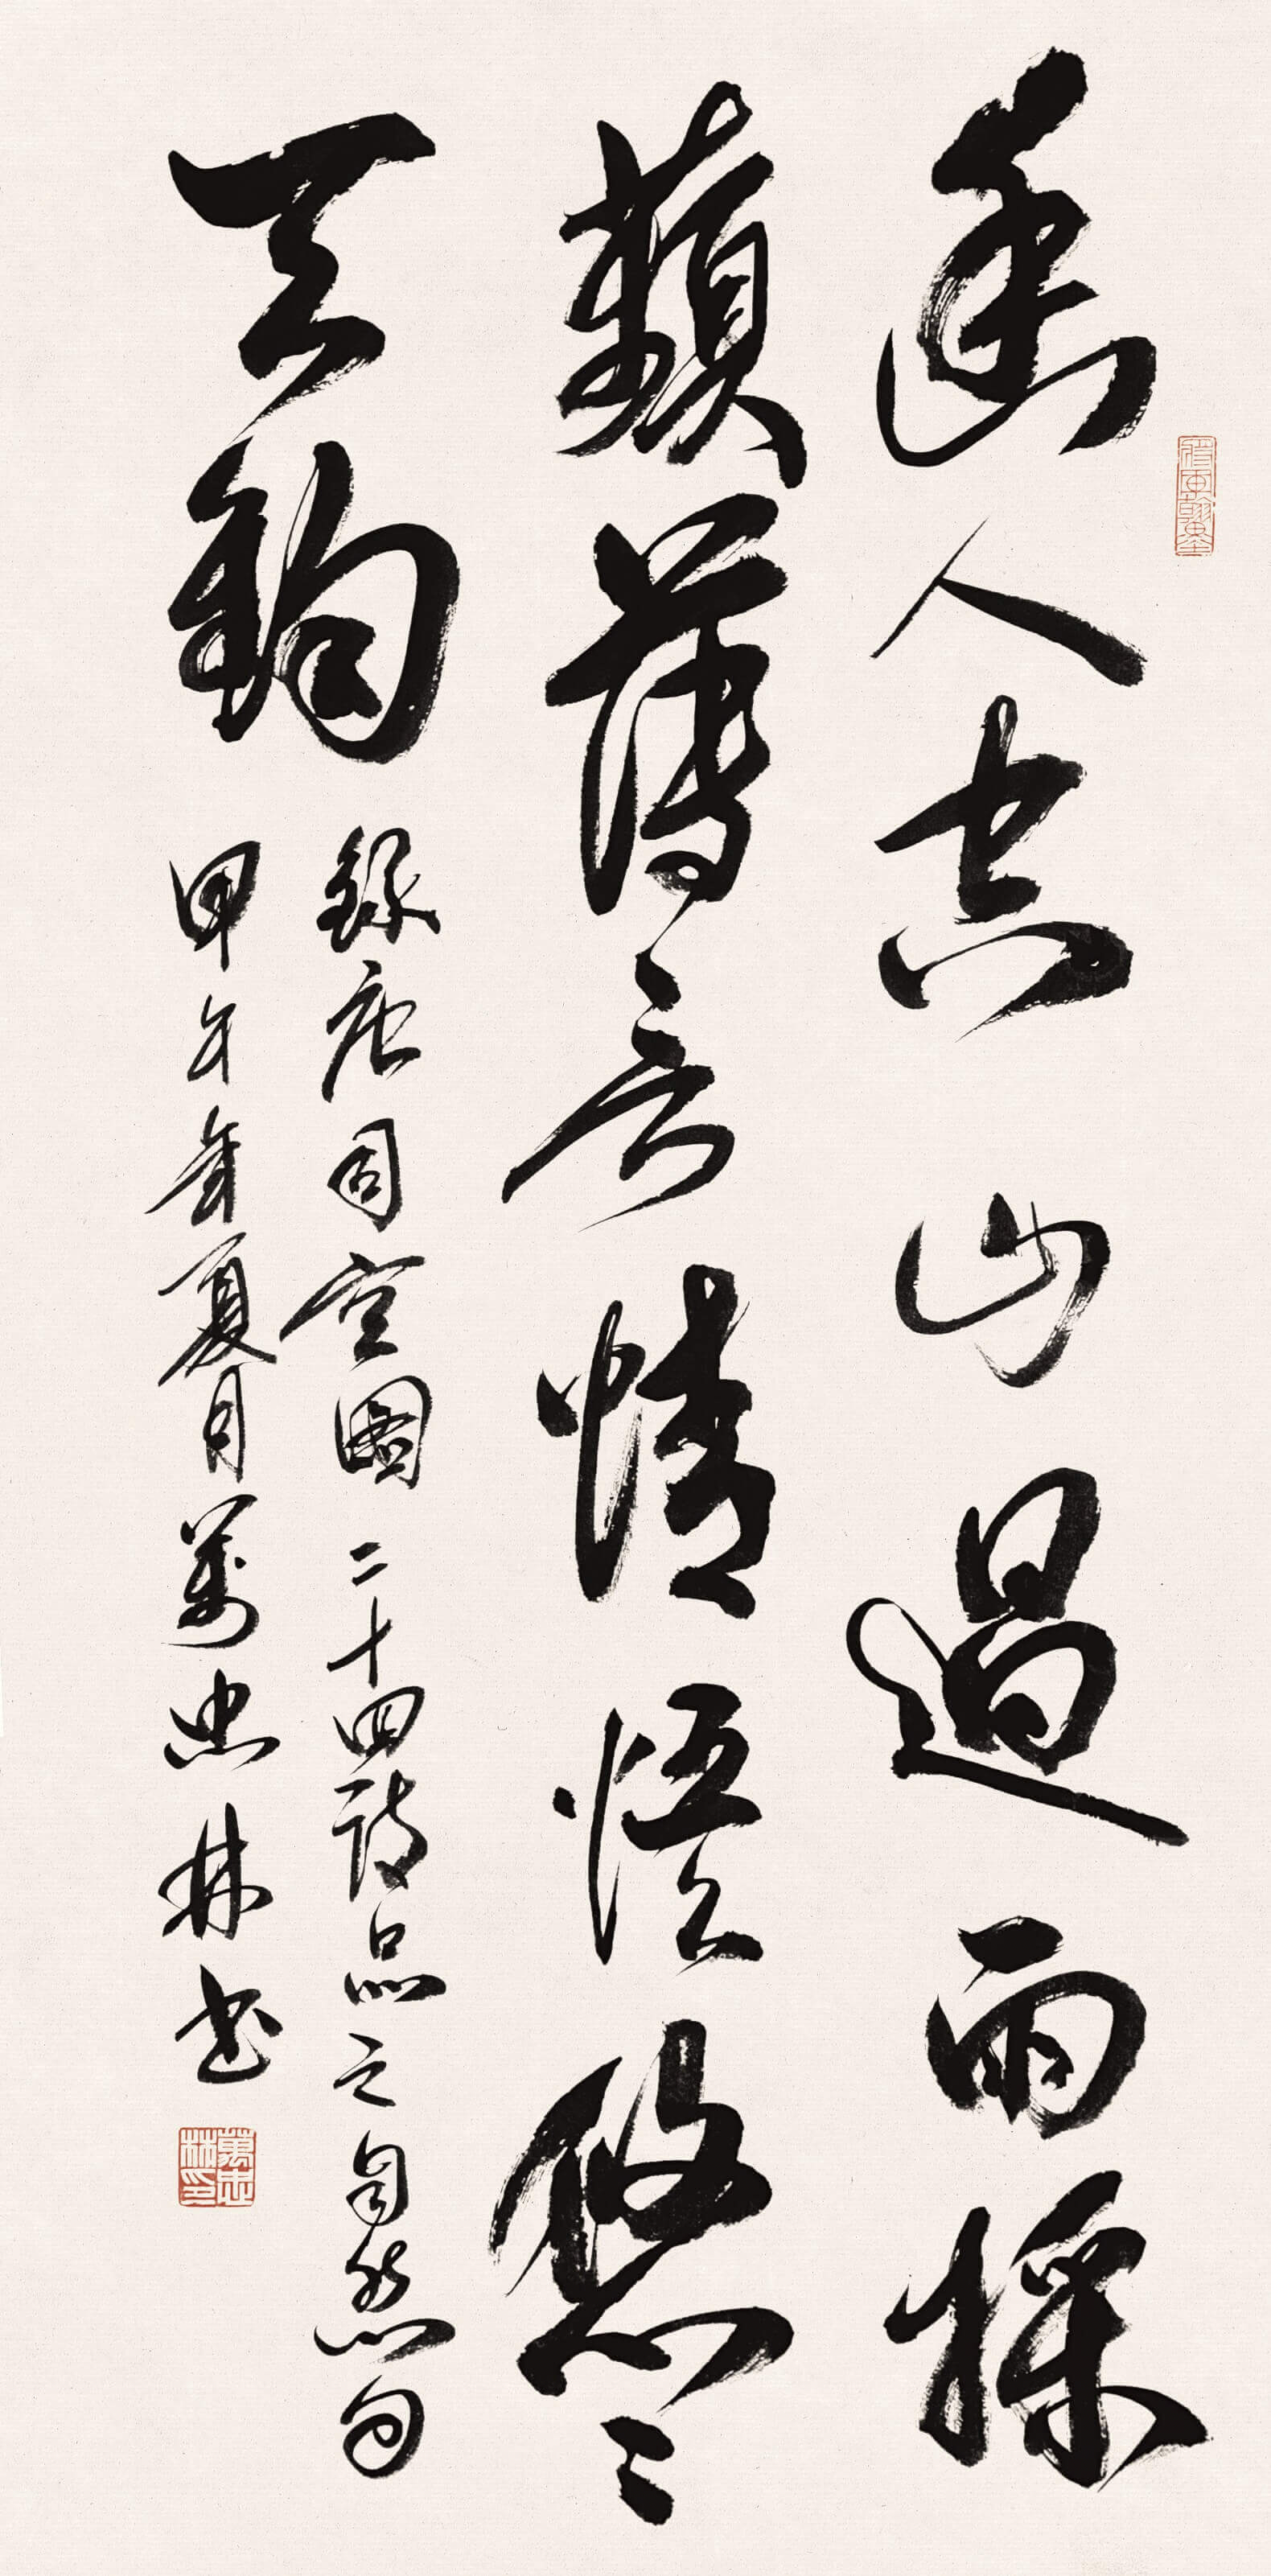 幽人空山過雨採
蘋薄言情悟悠〻
天鈞
録唐司空圖二十四詩品之自然句
甲午年夏月萬忠林書
萬忠林印